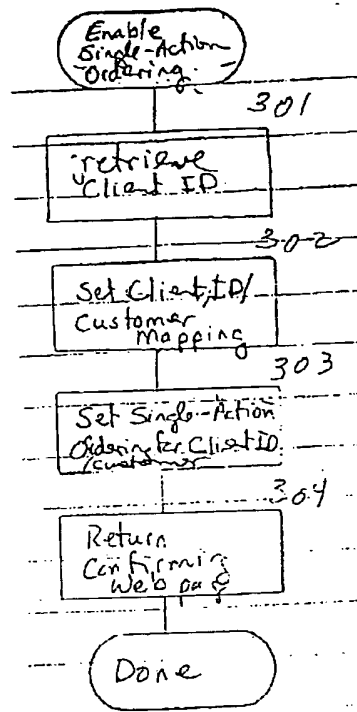 Enable
Single-Action
Ordering
301
retrieve
Client ID
302
Set Client ID/
Customer
Mapping
303
Set Single-Action
Ordering for Client ID
/customer
304
Return
Confirming
Web page
Done